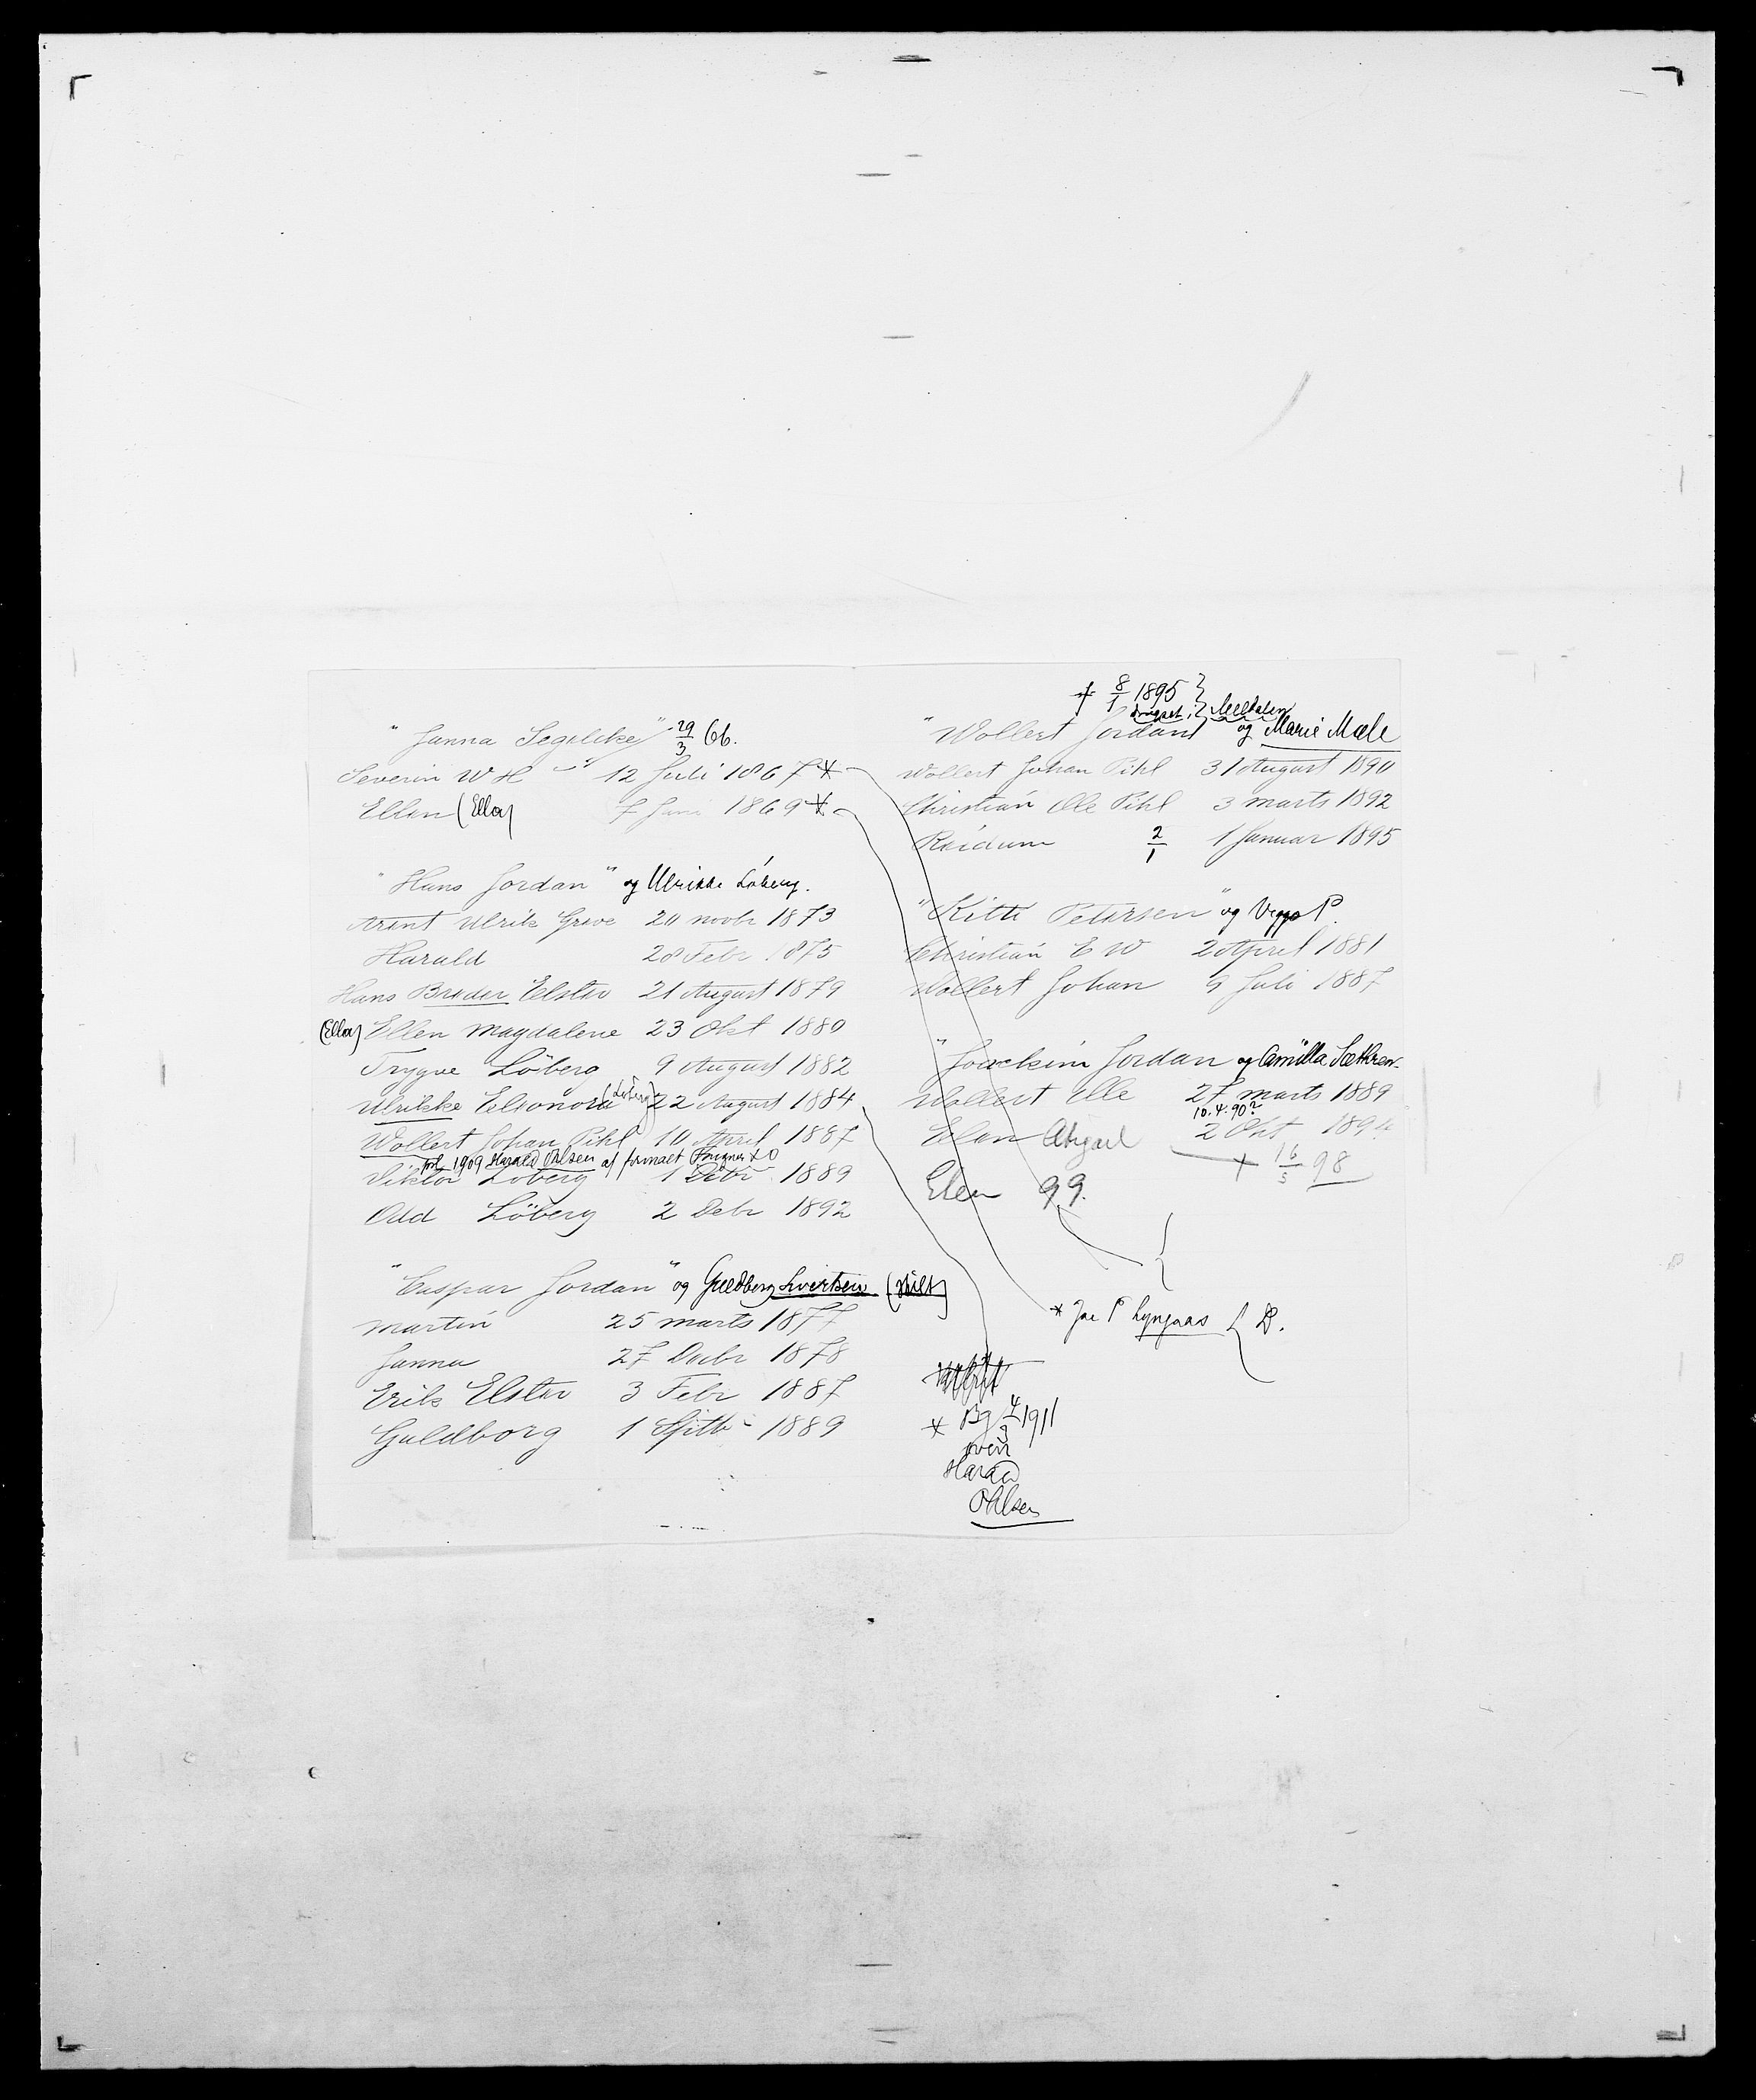 "Janna Segelcke" 29/3 66.
Severin W H 12 Juli 1867 *
Ellen (Ella) 7 Juni 1869 *
"Hans Jordan" og Ulrikke Löberg.
Arent Ulrik Greve 20 novbr 1873
Harald 28 Febr 1875
Hans Broder Elster 21 August 1879
(Ella) Ellen Magdalene 23 Okt 1880
Trygve Löberg 9 August 1882
Ulrikke Eleonora (Löberg) 22 August 1884
Wollert Johan Pihl 10 April 1887
1909 Harald Ohlsen af firmaet
Viktor Löberg 1 Debr 1889
Odd Löberg 2 Debr 1892
"Caspar Jordan" og Guldborg Sivertsen (skilt)
Martin 25 marts 1877
Janna 27 Decbr 1878
Erik Elster 3 Febr 1887
Guldborg 1 Sptb 1889
† 8/1 1895 }
druknet i Meldalen
"Wollert Jordan" og Marie Mæle
Wollert Johan Pihl 31 August 1890
Christian Elle Pihl 3 marts 1892
Reidun 2/1 1 Januar 1895
"Kitti Petersen" og Viggo P.
Christian E W 2 April 1881
Wollert Johan 9 Juli 1887
"Joackim Jordan og Camilla Sæthren
Wollert Elle 27 marts 1889
10.4.90?
Elen Abigael 2 Okt 1894
† 16/5 98
Elen 99.
* Jac P Lyngaas { D.
* Bg 4/9 1911
Harald
Ohlsen